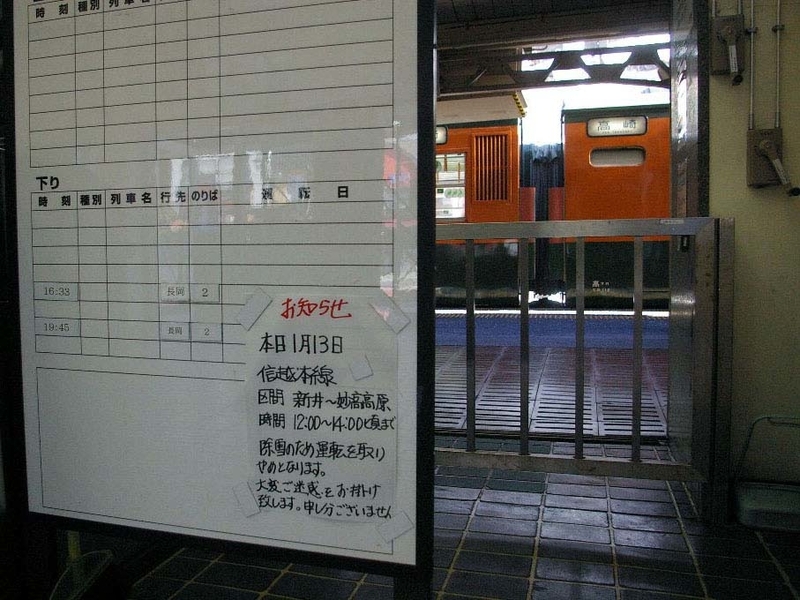 時 刻 種別 列車名
下り
時 刻 種別 列車名 行先 のりば 運 転 日
16:33 長岡 2
19:45 長岡 2
お知らせ
本日1月13日
信越本線
区間 新井~妙高高原
時間 12:00~14:00頃まで
除雪のため運転を取り
やめとなります。
大変ご迷惑をお掛け
致します。申し分ございません
高 崎